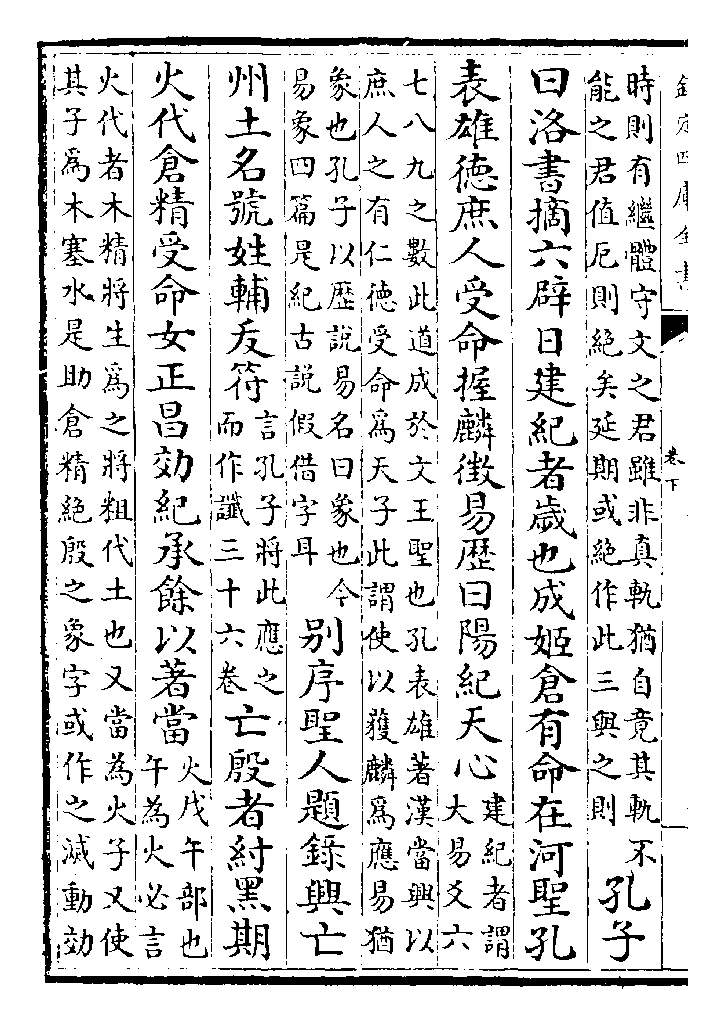 欽定四庫全書
卷下
時則有繼體守文之君雖非真軌猶自竟其軌不
能之君值厄則絶矣延期或絶作此三與之則
孔子
曰洛書摘六辟曰建紀者歲也成姬倉有命在河聖孔
表雄德庶人受命握麟徵易歷曰陽紀天心
建紀者謂
大易爻六
七八九之數此道成於文王聖也孔表雄著漢當興以
庶人之有仁德受命爲天子此謂使以獲麟爲應易猶
象也孔子以歷説易名曰象也今
易象四篇是紀古説假借字耳
别序聖人題錄興亡
州土名號姓輔叐符
言孔子將此應之
而作讖三十六卷
亡殷者紂黑期
火代倉精受命女正昌効紀承餘以著當
火戊午部也
午為火必言
火代者木精將生爲之將粗代土也又當為火子又使
其子爲木塞水是助倉精絶殷之象字或作之滅動効